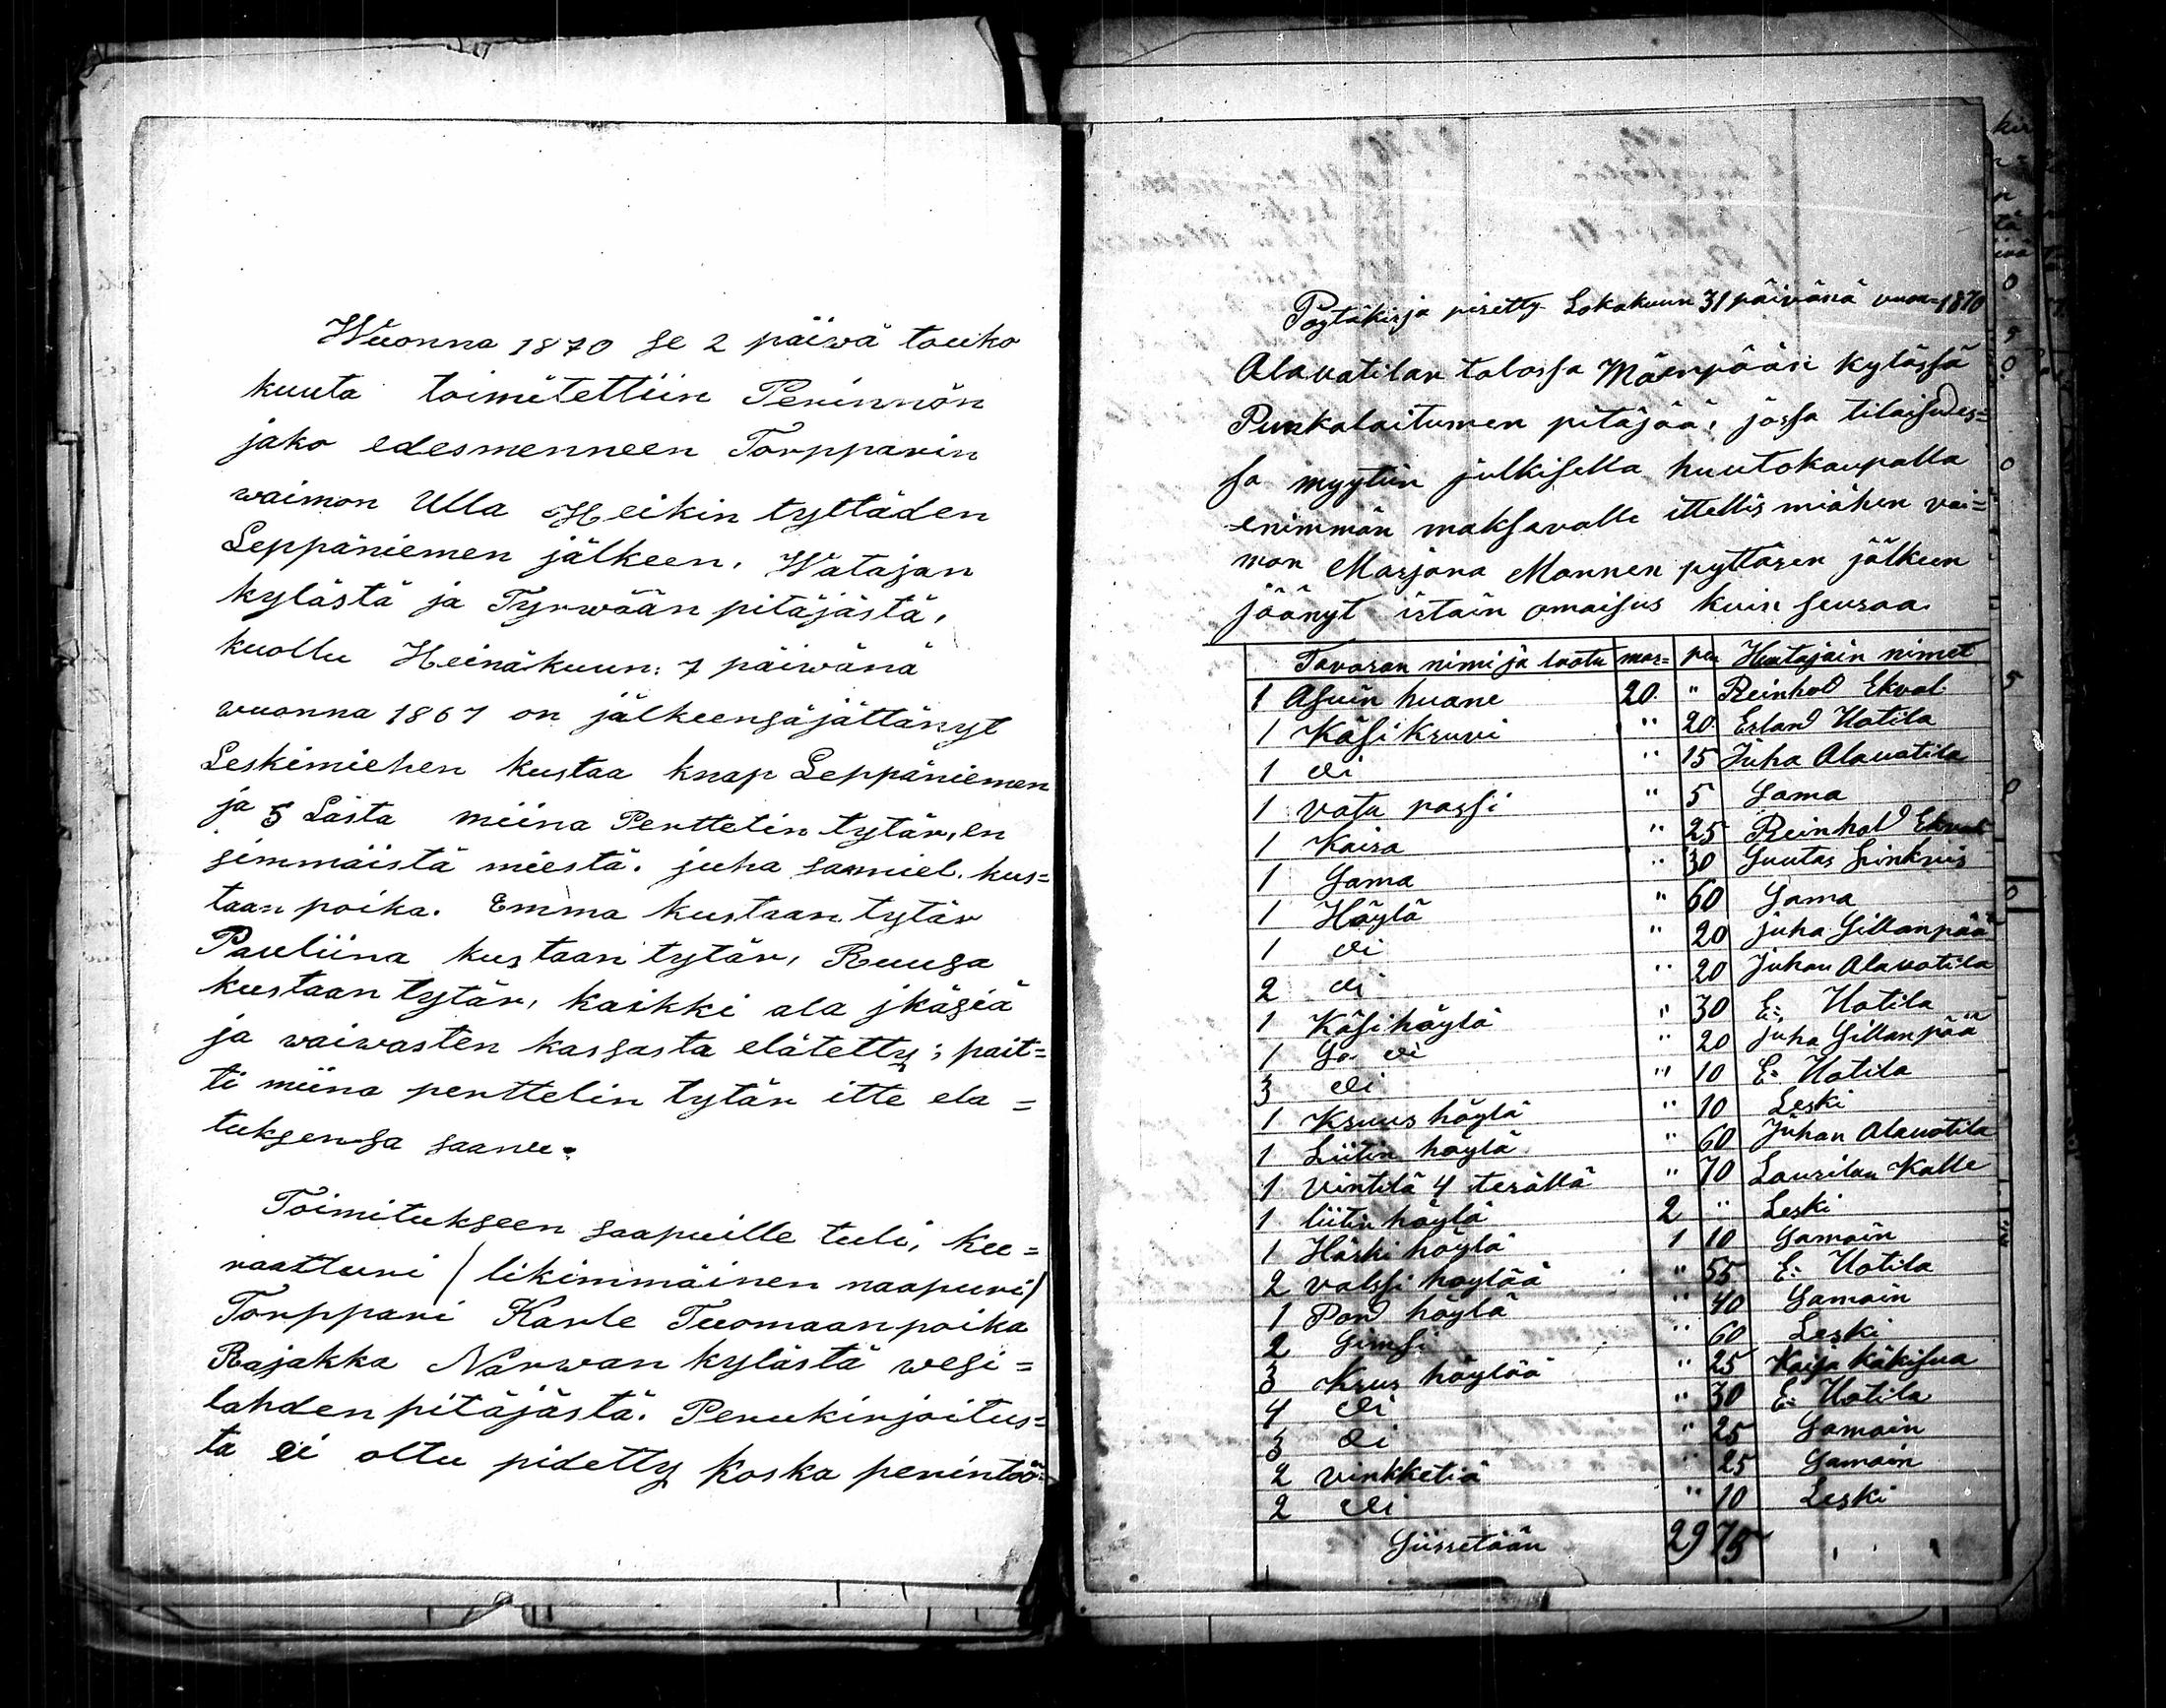 Wuonna 1870 se 2 päiwä touko
kuuta toimitettiin Perinnön
jako edesmenneen Torpparin
waimon Ulla Heikin tyttäden
Leppäniemen jälkeen, Watajan
kylästä ja Tyrwään pitäjästä,
kuollu Heinäkuun: 7 päiwänä
wuonna 1867 on jälkeensäjättänyt
Leskimiehen kustaa knap Leppäniemen
ja 5 Lasta miina Perttelin tytär, en
simmäistä miestä. juha samiel. kus=
taan poika. Emma kustaan tytär
Pauliina kustaan tytär, Ruusa
kustaan tytär, kaikki ala jkäsiä
ja waiwasten kassasta elätetty; pait=
ti miina perttelin tytär itte ela=
tuksensa saanu.
Toimitukseen saapuille tuli, ku=
raattuuri (likimmäinen naapuuri)
Torppari Karle Tuomaanpoika
Rajakka Narwan kylästä wesi=
lahden pitäjästä. Perukirjoitus=
ta ei oltu pidetty koska perintöö=
Pöytäkirja piretty Lokakuun 31 päivänä vuon= 1870
Alauotilan talossa Mäenpään kylässä
Punkalaitumen pitäjää, jossa tilaisudes=
sa myytiin julkisella huutokaupalla
enimmän maksavalle ittellis miähen vai=
mon Marjana Mannen pyttären jälkeen
jäänyt irtain omaisus kuin seuraa.
Tavaran nimi ja laatu mar= pen Huutajain nimet
1 Asuin huane 20. " Reinhod Ekval
1 Käsi kruvi " 20. Erland Uotila
1 di " 15 Juha Alauotila
1 vatu passi " 5 Sama
1 Kaira " 25 Reinhold Ekval
1 Sama " 30 Suutar
1 Höylä " 60 Sama
1 di " 20 juha Sillanpää
2 di " 20 Juhan Alauotila
1 Käsihöylä " 30 E: Uotila
1 Sa di " 20 juha Sillanpää
3 di " 10 E: Uotila
1 Kruus höylä " 10 Leski
1 Liitin höylä " 60 Juhan Alauotila
1 Vintilä 4 terällä " 70 Laurilan Kalle
1 liitin höylä 2 " Leski
1 Härki höylä 1 10 Samain
2 valssi höylää " 55 E: Uotila
1 Pond höylä " 40 Samain
2 Simssi " 60 Leski
3 Krus höylää " 25 Kaisa
4 di " 30 E: Uotila
3 di " 25 Samain
2 vinkketiä " 25 Samain
2 di " 10 Leski
Siirretään 29 75